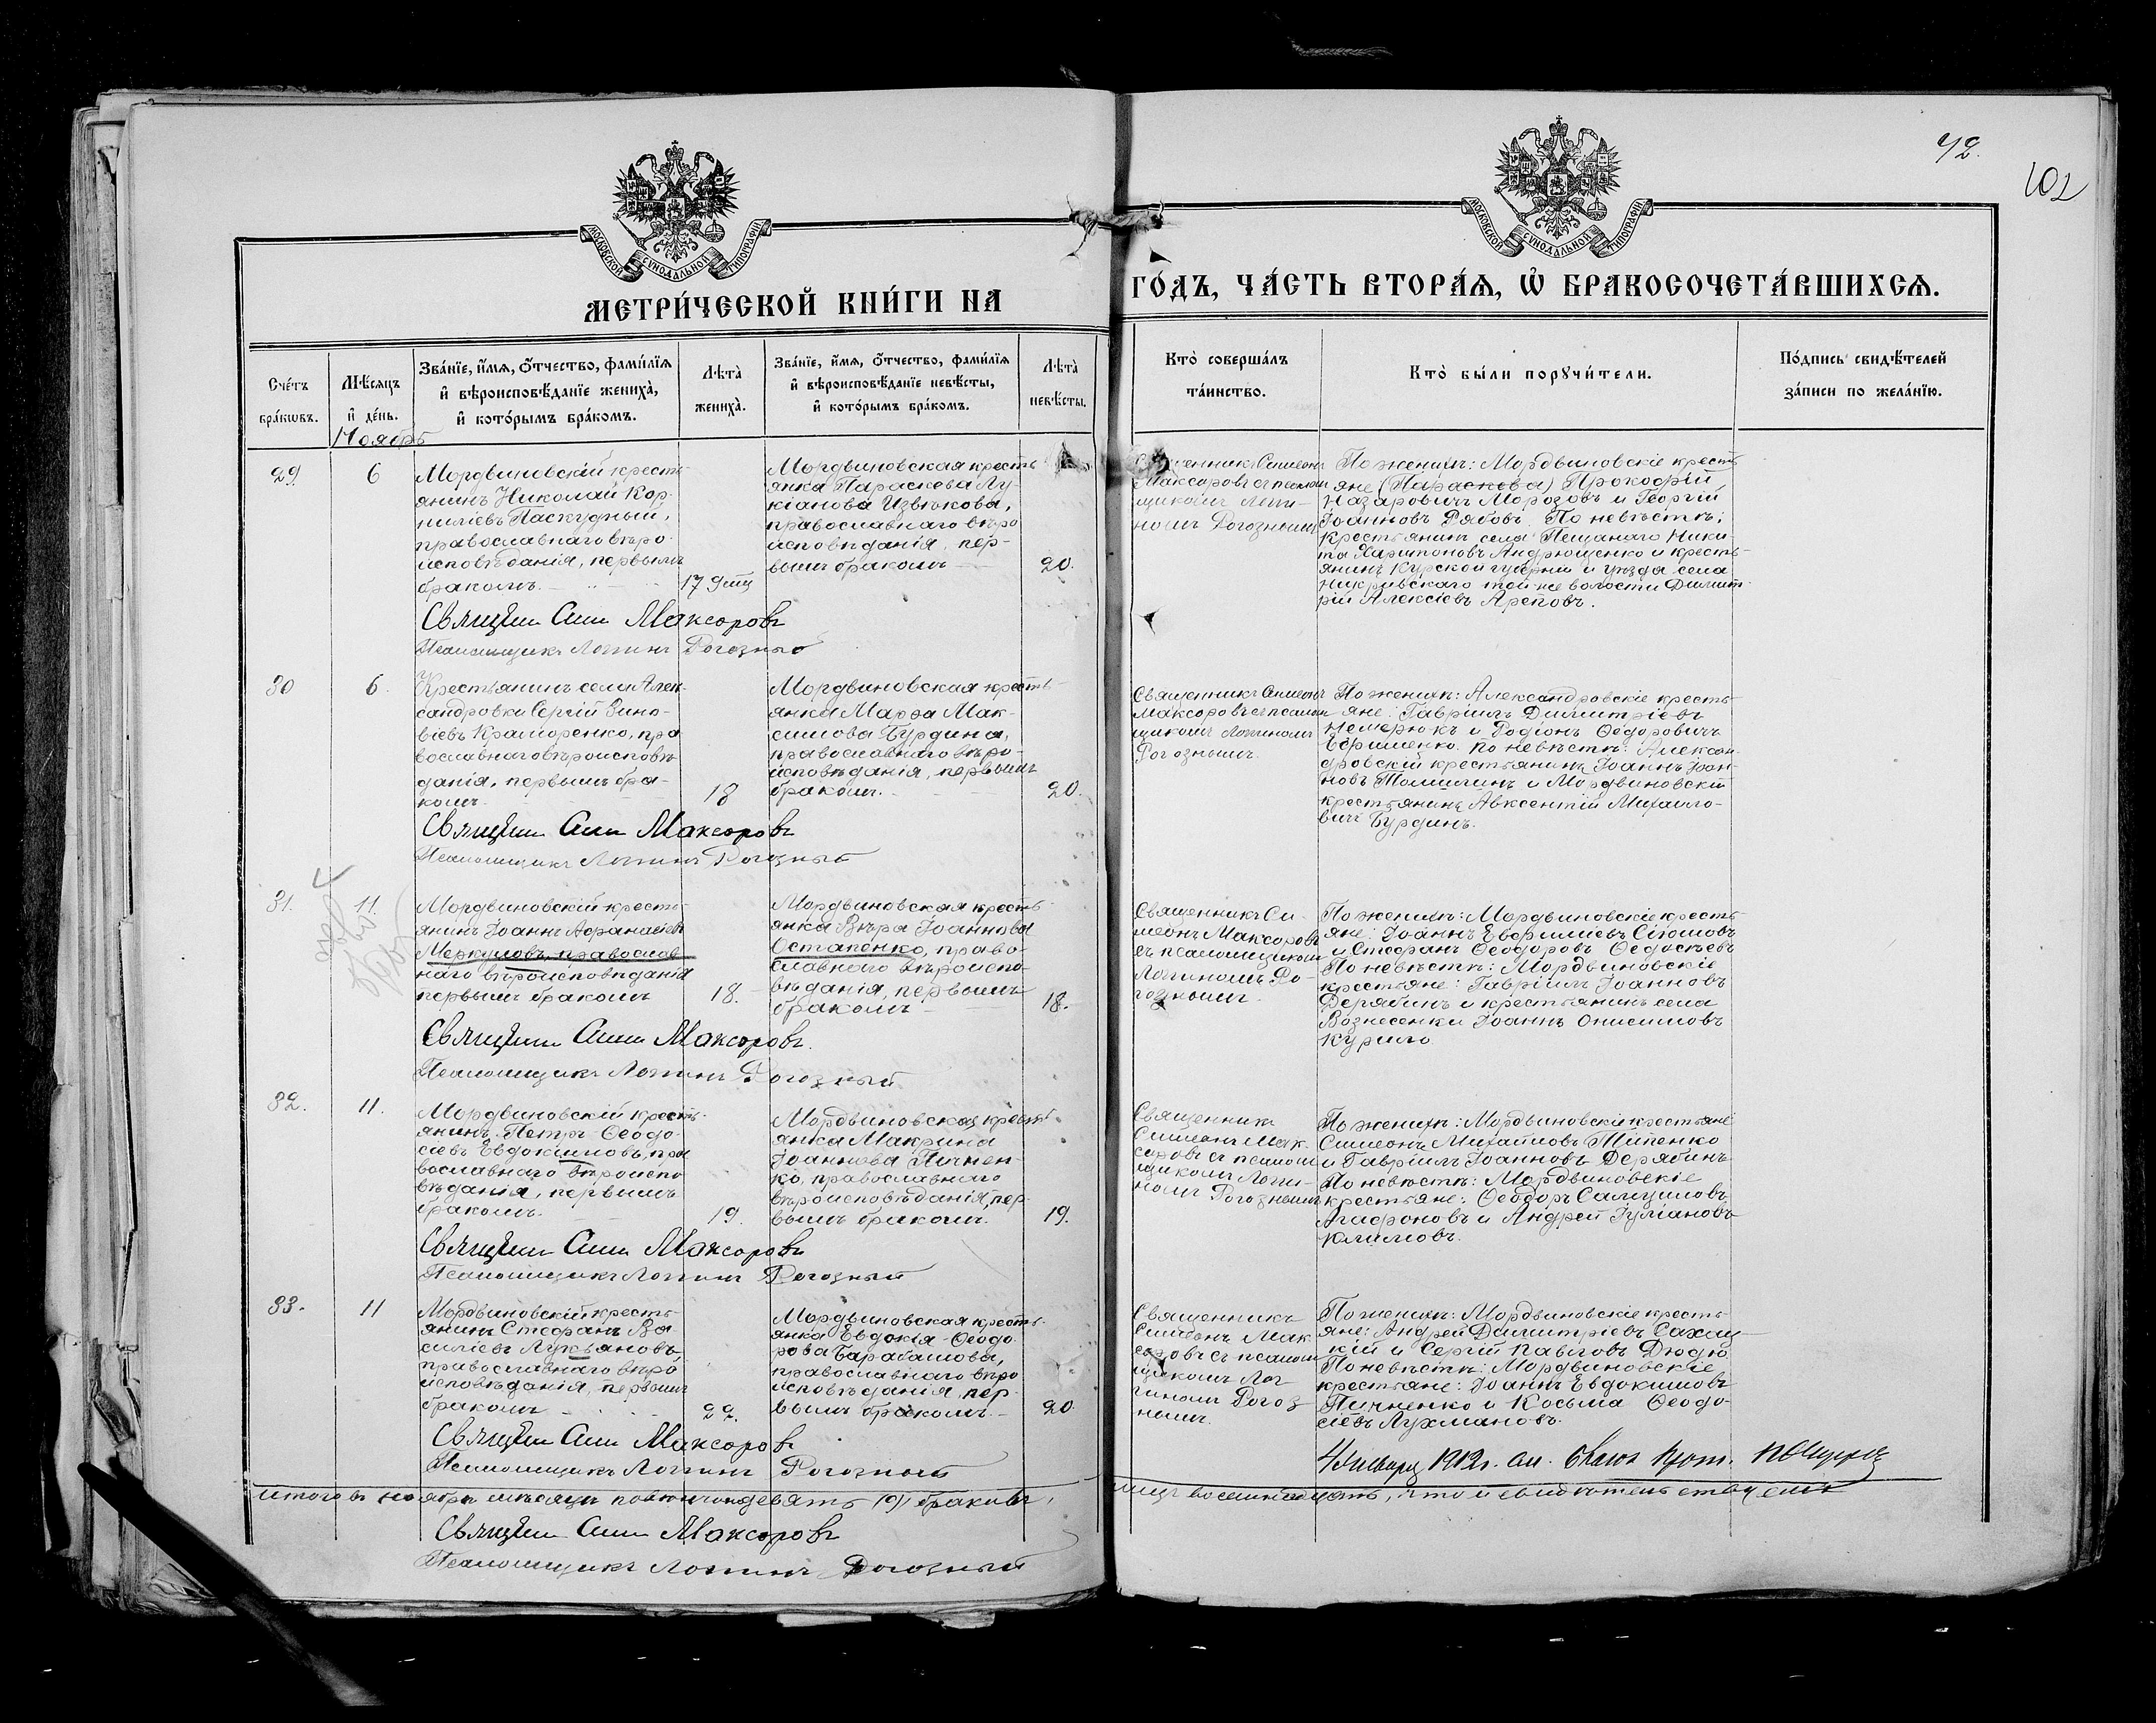 42.
102
МОСКОВСКОЙ СУНОДАЛЬНОЙ ТИПОГРАФИИ
МОСКОВСКОЙ СУНОДАЛЬНОЙ ТИПОГРАФИИ
МЕТРИ́ЧЕСКОЙ КНИ́ГИ НА
ГО́ДЪ, ЧА́СТЬ ВТОРА́Я, Ѡ БРАКОСОЧЕТА́ВШИХСЯ.
Сче́тъ бра́кѡвъ.
Мѣ́сяцъ и҆ де́нь.
Зва́нїе, и҆́мя, ѻ҆́тчество, фами́лїя и҆ вѣроисповѣ́данїе жениха̀, и҆ кото́рымъ бра́комъ.
Лѣта̀ жениха̀.
Зва́нїе, и҆́мя, ѻ҆́тчество, фами́лїя и҆ вѣроисповѣ́данїе невѣ́сты, и҆ кото́рымъ бра́комъ.
Лѣта̀ невѣ́сты.
Кто̀ соверша́лъ та́инство.
Кто̀ бы́ли порꙋчи́тели.
По́дпись свидѣ́телей за́писи по жела́нїю.
Ноябрь
29
6
Мордвиновскій кресть-
янинъ Николай Кор-
ниліевъ Паскудный,
православнаго вѣро-
исповѣданія, первымъ
бракомъ.
17
Мордвиновская кресть-
янка Параскева Лу-
кіанова Извѣкова,
православнаго вѣро
исповѣданія, пер-
вымъ бракомъ
20.
Священникъ Симеонъ
Максоровъ съ псалом
щикомъ Логи-
номъ Рогознымъ
По женихѣ: Мордвиновскіе кресть
яне (Параскева) Прокофій
Назаровичъ Морозовъ и Георгій
Іоанновъ Рябовъ. По невѣстѣ:
крестьянинъ села Пещанаго Ники-
та Харитоновъ Андрющенко и кресть-
янинъ Курской губерніи и уѣзда села
той же волости Димит-
рій Алексіевъ Ареповъ.
Симе Максоровъ
Псаломщикъ Логинъ Рогозный
30
6.
Крестьянинъ села Алек-
сандровки Сергій Зино-
віевъ Краморенко, пра
вославнаго вѣроисповѣ
данія, первымъ бра-
комъ.
18
Мордвиновская кресть-
янка Марѳа Мак-
симова Бурдина,
православнаго вѣро-
исповѣданія, первымъ
бракомъ.
20.
Священникъ Симеонъ
Максоровъ съ псалом
щикомъ Логиномъ
Рогознымъ.
По женихѣ: Александровскіе кресть-
яне: Гавріилъ Димитріевъ
Немерюкъ и Родіонъ Ѳедоровичъ
Ефименко. По невѣстѣ: Алексан-
дровскій крестьянинъ Іоаннъ Іоан-
новъ Толмилинъ и Мордвиновскій
крестьянинъ Авксентій Михаило-
вичъ Бурдинъ.
Симе Максоровъ
Псаломщикъ Логинъ Рогозный
31.
11.
Мордвиновскій кресть-
янинъ Іоаннъ Аѳанасіевъ
Меркуловъ, православ
наго вѣроисповѣданія
первымъ бракомъ
18.
Мордвиновская кресть-
янка Вѣра Іоаннова
Остапенко, право-
славнаго вѣроиспо-
вѣданія, первымъ
бракомъ
18.
Священникъ Си-
меонъ Максоровъ
съ псаломщикомъ
Логиномъ Ро-
гознымъ.
По женихѣ: Мордвиновскіе кресть
яне: Іоаннъ Евфиміевъ
и Стефанъ Ѳеодоровъ Ѳедосѣевъ
По невѣстѣ: Мордвиновскіе
крестьяне: Гавріилъ Іоанновъ
Дерябинъ и крестьянинъ села
Вознесенки Іоаннъ Онисимовъ
Курило
Симе Максоровъ.
Псаломщикъ Логинъ Рогозный
32.
11.
Мордвиновскій кресть-
янинъ Петръ Ѳеодо-
сіевъ Евдокимовъ, пра
вославнаго вѣроиспо
вѣданія, первымъ
бракомъ.
19.
Мордвиновская кресть
янка Макрина
Іоаннова Пичнен-
ко, православнаго
вѣроисповѣданія, пер
вымъ бракомъ.
19.
Священникъ
Симеонъ Мак-
соровъ съ псалом
щикомъ Логи-
номъ Рогознымъ
По женихѣ: Мордвиновскіе крестьяне
Симеонъ Михаиловъ Пипенко
и Гавріилъ Іоанновъ Дерябинъ
По невѣстѣ: Мордвиновскіе
крестьяне: Ѳеодоръ Самуиловъ
Агафоновъ и Андрей Іуліановъ
Климовъ.
Симе Максоровъ
Псаломщикъ Логинъ Рогозный
33.
11
Мордвиновскій кресть-
янинъ Стефанъ Ва-
силіевъ Лукьяновъ,
православнаго вѣро
исповѣданія, первымъ
бракомъ
22.
Мордвиновская кресть-
янка Евдокія Ѳеодо-
рова Барабашова,
православнаго вѣро
исповѣданія, пер-
вымъ бракомъ.
20.
Священникъ
Симеонъ Мак
соровъ съ псалом
щикомъ Лог-
гиномъ Рогоз-
нымъ.
По женихѣ: Мордвиновскіе кресть-
яне: Андрей Димитріевъ Сахац-
кій и Сергій Павловъ Дюдю
По невѣстѣ: Мордвиновскіе
крестьяне: Іоаннъ Евдокимовъ
Пичненко и Косьма Ѳеодо-
сіевъ Лухмановъ.
Симе Максоровъ
Псаломщикъ Логинъ Рогозный
4 Января 1912 г.
Итого въ ноябрѣ мѣсяцѣ повѣнчано девять (9) браковъ,
лицъ восемнадцать, что и свидѣтельствуемъ
Симе Максоровъ
Псаломщикъ Логинъ Рогозный